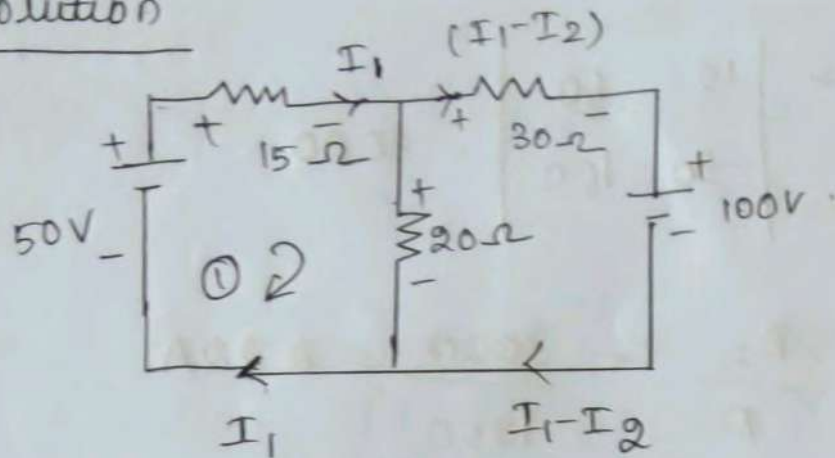 Solution
I1 (I1-I2)
+ + - + -
15Ω 30Ω +
50V + 20Ω 100V
- ① - -
I1 I1-I2